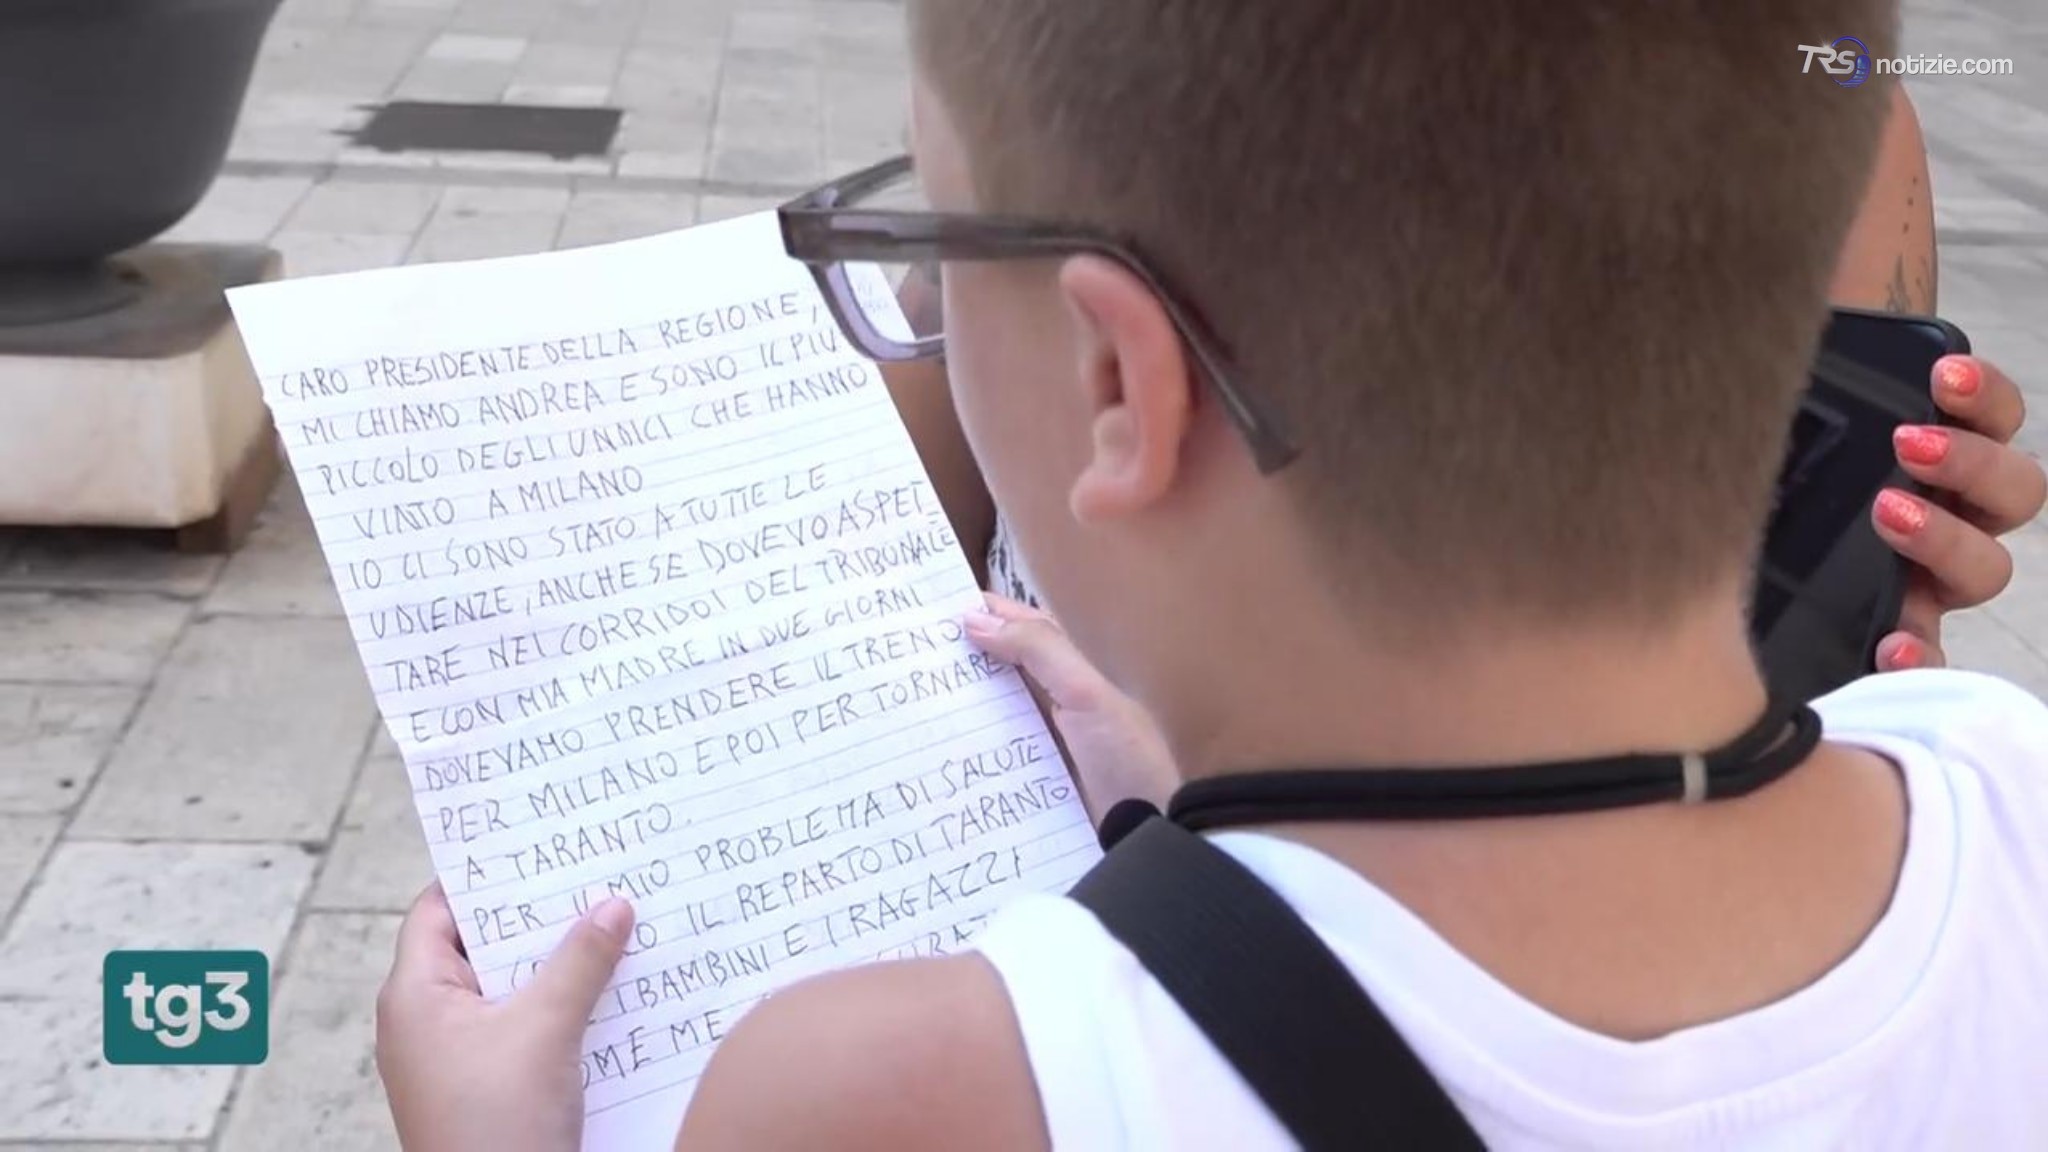 TRS notizie.com
CARO PRESIDENTE DELLA REGIONE,
MI CHIAMO ANDREA E SONO IL PIU
PICCOLO DEGLI UNDICI CHE HANNO
VINTO A MILANO
IO CI SONO STATO A TUTTE LE
UDIENZE, ANCHE SE DOVEVO ASPET_
TARE NEI CORRIDOI DEL TRIBUNALE
E CON MIA MADRE IN DUE GIORNI
DOVEVAMO PRENDERE IL TRENO
PER MILANO E POI PER TORNARE
A TARANTO.
PER IL MIO PROBLEMA DI SALUTE
IL REPARTO DI TARANTO
I BAMBINI E I RAGAZZI
OME ME
tg3